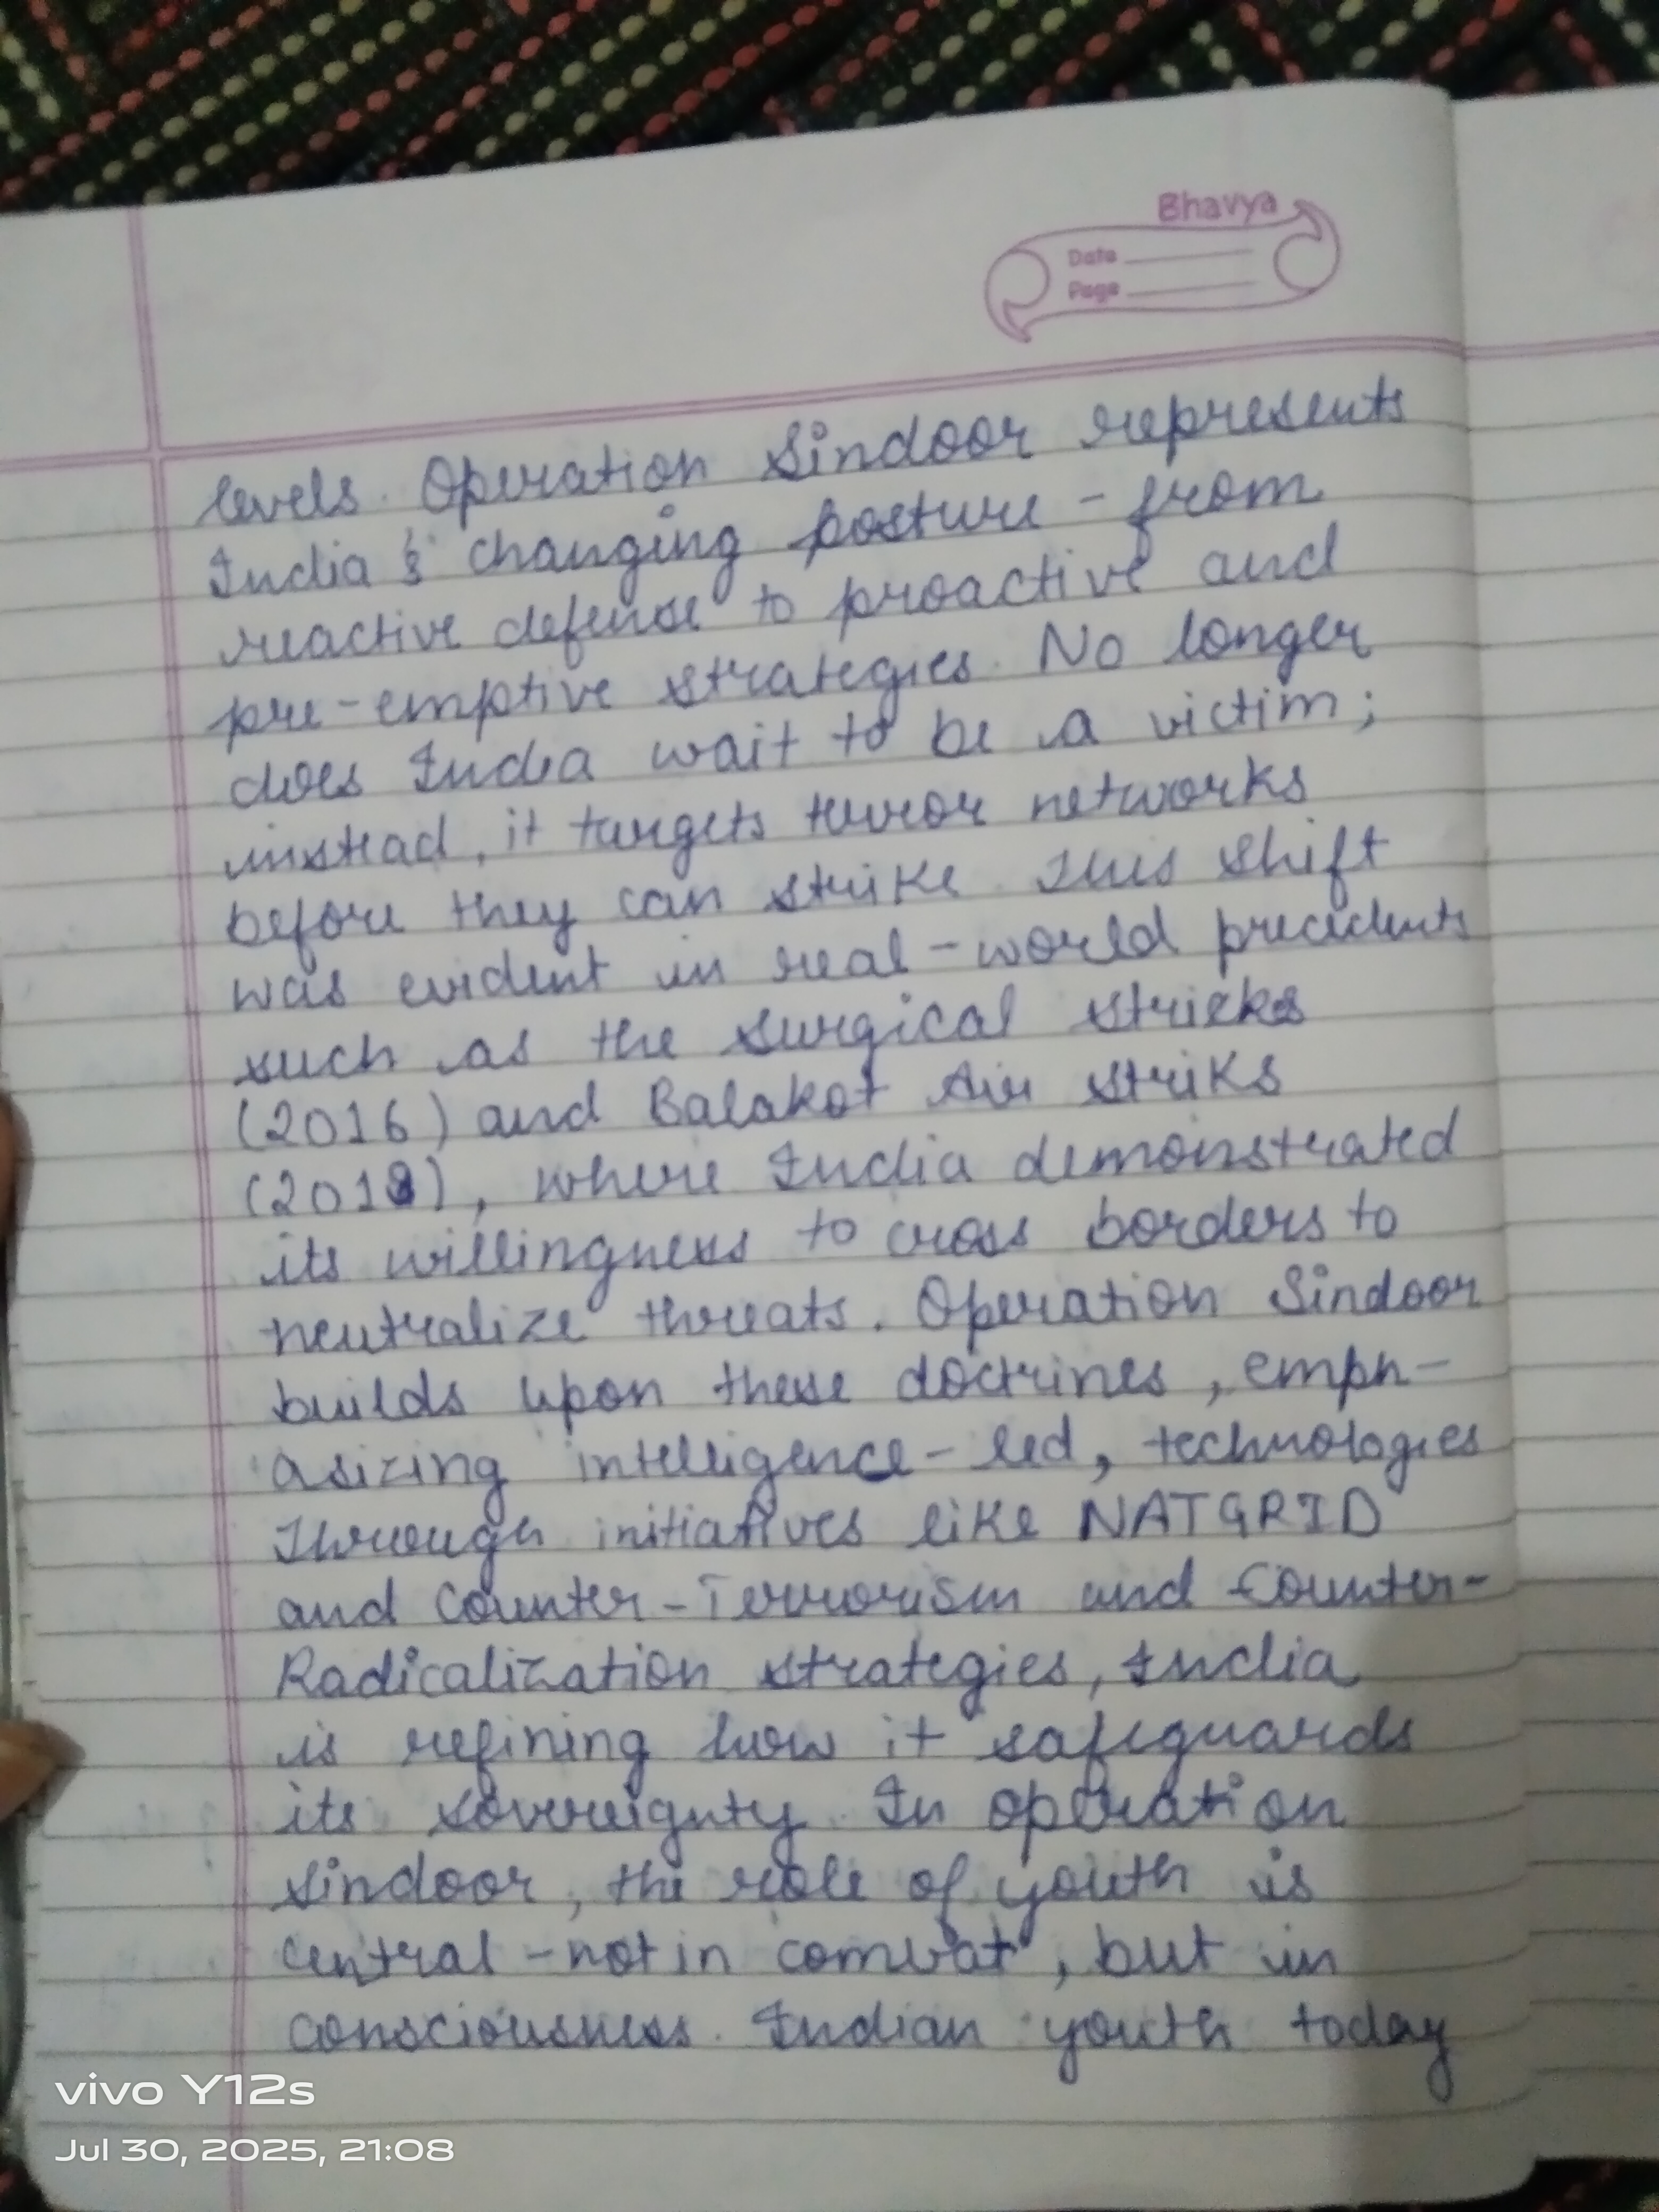 Bhavya
Date
Page
levels. Operation Sindoor represents
India's changing posture - from
reactive defense to proactive and
pre-emptive strategies. No longer
does India wait to be a victim;
instead, it targets terror networks
before they can strike. This shift
was evident in real-world precedents
such as the surgical strieks
(2016) and Balakot Air striks
(2019), where India demonstrated
its willingness to cross borders to
neutralize threats. Operation Sindoor
builds upon these doctrines, emph-
asizing intelligence-led, technologies
Through initiatives like NATGRID
and Counter-Terrorism and Counter-
Radicalization strategies, India
is refining how it safeguards
its sovereignty. In operation
sindoor, the role of youth is
central - not in combat, but in
consciousness. Indian youth today
vivo Y12s
Jul 30, 2025, 21:08